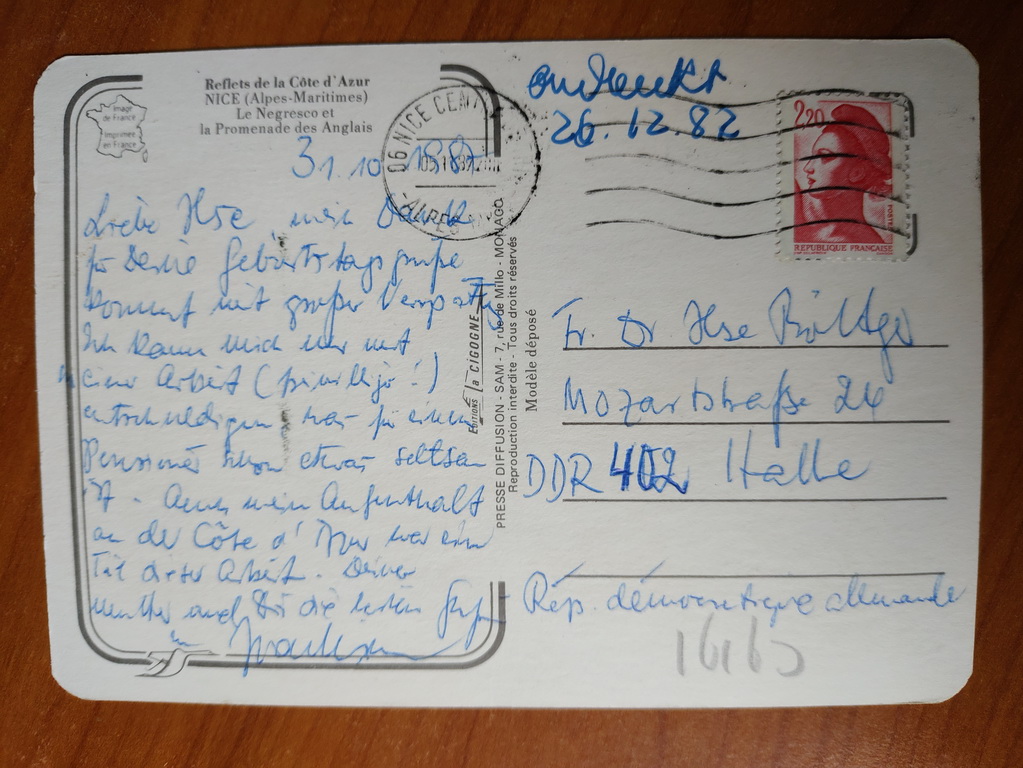 Reflets de la Côte d'Azur
NICE (Alpes-Maritimes)
Le Negresco et
la Promenade des Anglais
Image
de France
Imprimée
en France
31.10
06 NICE
ALPES
26.12.82
2,20
POSTES
REPUBLIQUE FRANÇAISE
Liebe Ilse mein Dank
für Deine Geburtstagsgrüße
kommt mit großer Verspätung
Ich kann mich nur mit
meiner Arbeit (freiwillig!)
entschuldigen was für einen
Pensionär schon etwas seltsam
ist. Auch mein Aufenthalt
an der Côte d'Azur war ein
Teil dieser Arbeit. Deiner
Mutter und Dir die besten Grüße
EDITIONS la CIGOGNE
PRESSE DIFFUSION - SAM - 7, rue de Millo - MONACO
Reproduction interdite - Tous droits réservés
Modèle déposé
Fr. Dr. Ilse
Mozartstraße 24
DDR 402 Halle
Rép. démocratique allemande